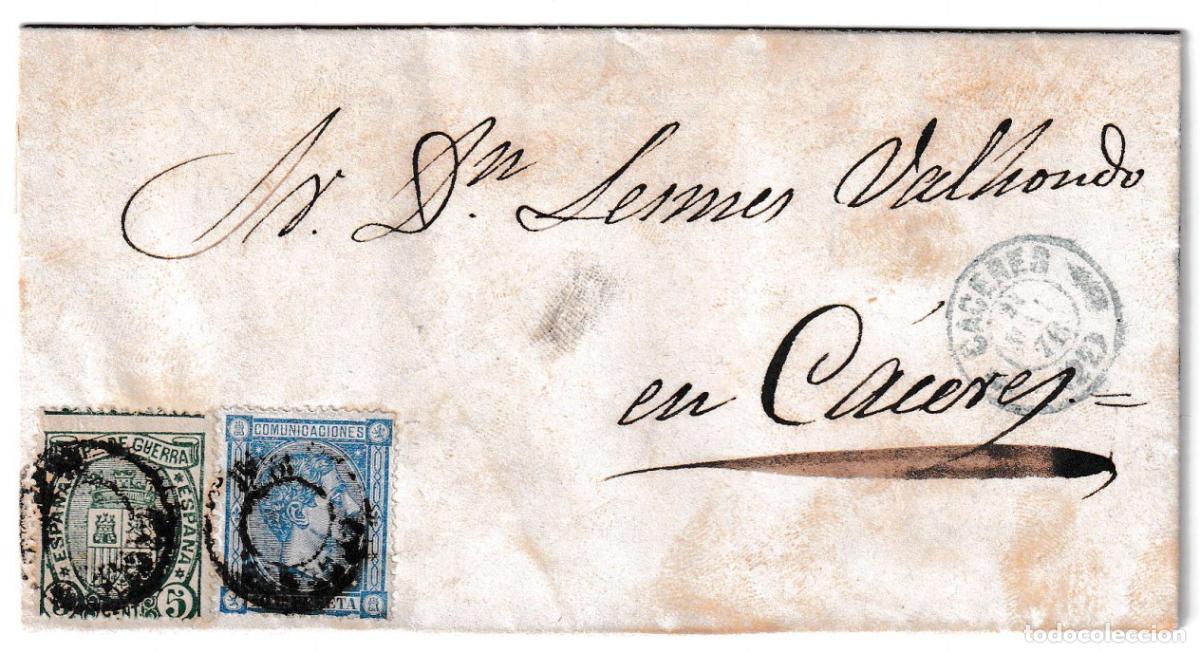 Sr. Dn. Lesmes Valhondo
en Cáceres.=
CACERES
76
(22)
DE GUERRA
ESPAÑA
ESPAÑA
5
CENT
COMUNICACIONES
todocoleccion